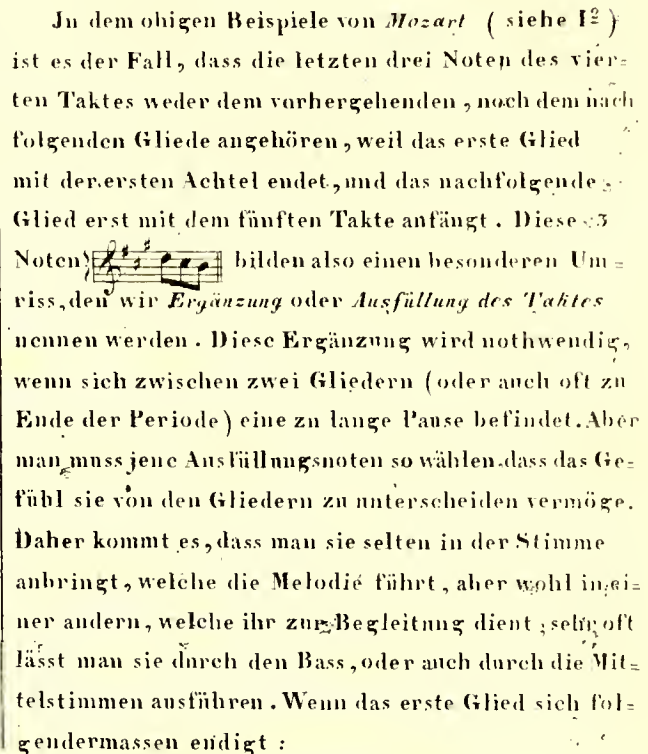 In dem obigen Beispiele von Mozart ( siehe Iº )
ist es der Fall, dass die letzten drei Noten des vier=
ten Taktes weder dem vorhergehenden, noch dem nach
folgenden Gliede angehören, weil das erste Glied
mit der ersten Achtel endet, und das nachfolgende
Glied erst mit dem fünften Takte anfängt. Diese 3
Noten bilden also einen besonderen Um=
riss, den wir Ergänzung oder Ausfüllung des Taktes
nennen werden. Diese Ergänzung wird nothwendig,
wenn sich zwischen zwei Gliedern (oder auch oft zu
Ende der Periode) eine zu lange Pause befindet. Aber
man muss jene Ausfüllungsnoten so wählen, dass das Ge=
fühl sie von den Gliedern zu unterscheiden vermöge.
Daher kommt es, dass man sie selten in der Stimme
anbringt, welche die Melodie führt, aber wohl in ei=
ner andern, welche ihr zur Begleitung dient; sehr oft
lässt man sie durch den Bass, oder auch durch die Mit=
telstimmen ausführen. Wenn das erste Glied sich fol=
gendermassen endigt :